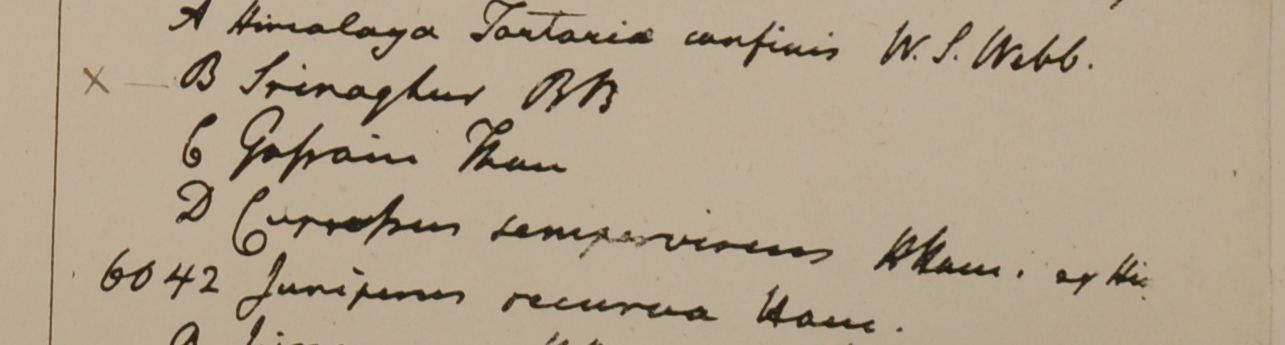 A Himalaya Tartariæ confinis W. S. Webb.
× — B Srinaghur RB
C Gossain Than
D Cupressus sempervirens Ham. ex Hi
6042 Juniperus recurva Ham.